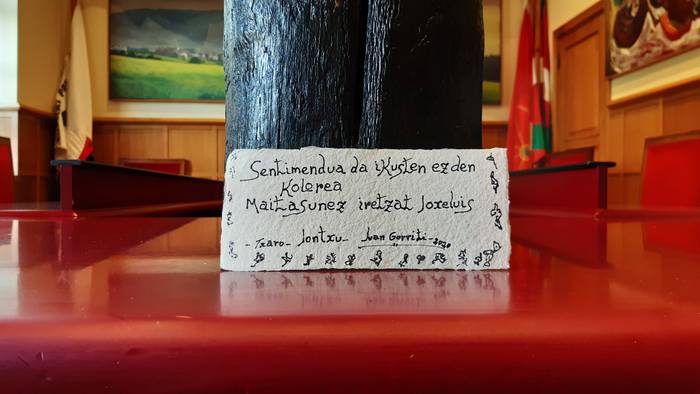 Sentimendua da ikusten ezden
Kolorea
Maitasunez iretzat Joxeluis
- Txaro - Jontxu - Juan Gorriti - 2020